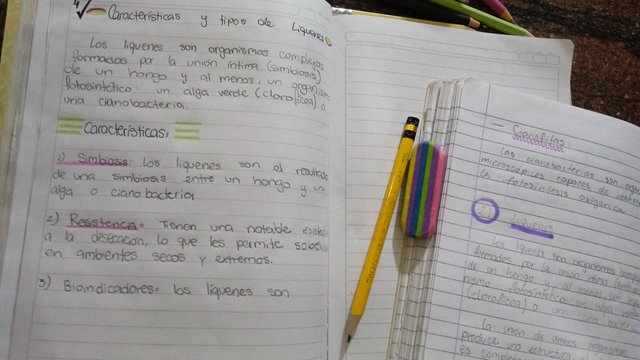 Características y tipos de Liquenes
Los liquenes son organismos complejos
formados por la unión íntima (simbiosis)
de un hongo y al menos, un organism
fotosintético: un alga verde (clorofícea) o
una cianobacteria.
Características:
1) Simbiosis: los liquenes son el resultado
de una simbiosis entre un hongo y una
alga o cianobacteria
2) Resistencia= Tienen una notable
a la desecación, lo que les permite
en ambientes secos y extremos.
3) Bioindicadores= los líquenes son
Cianofitas
Las cianobacterias son
microscopicos capaces de
la fotosintesis oxigenica.
2) Liquenes
Los liquenes son organismos
formados por la union intima
de un hongo y al menos un
fotosintetico un alga verde
(clorofícea) o una ciano
La union de ambos organismos
produce una estructura
es